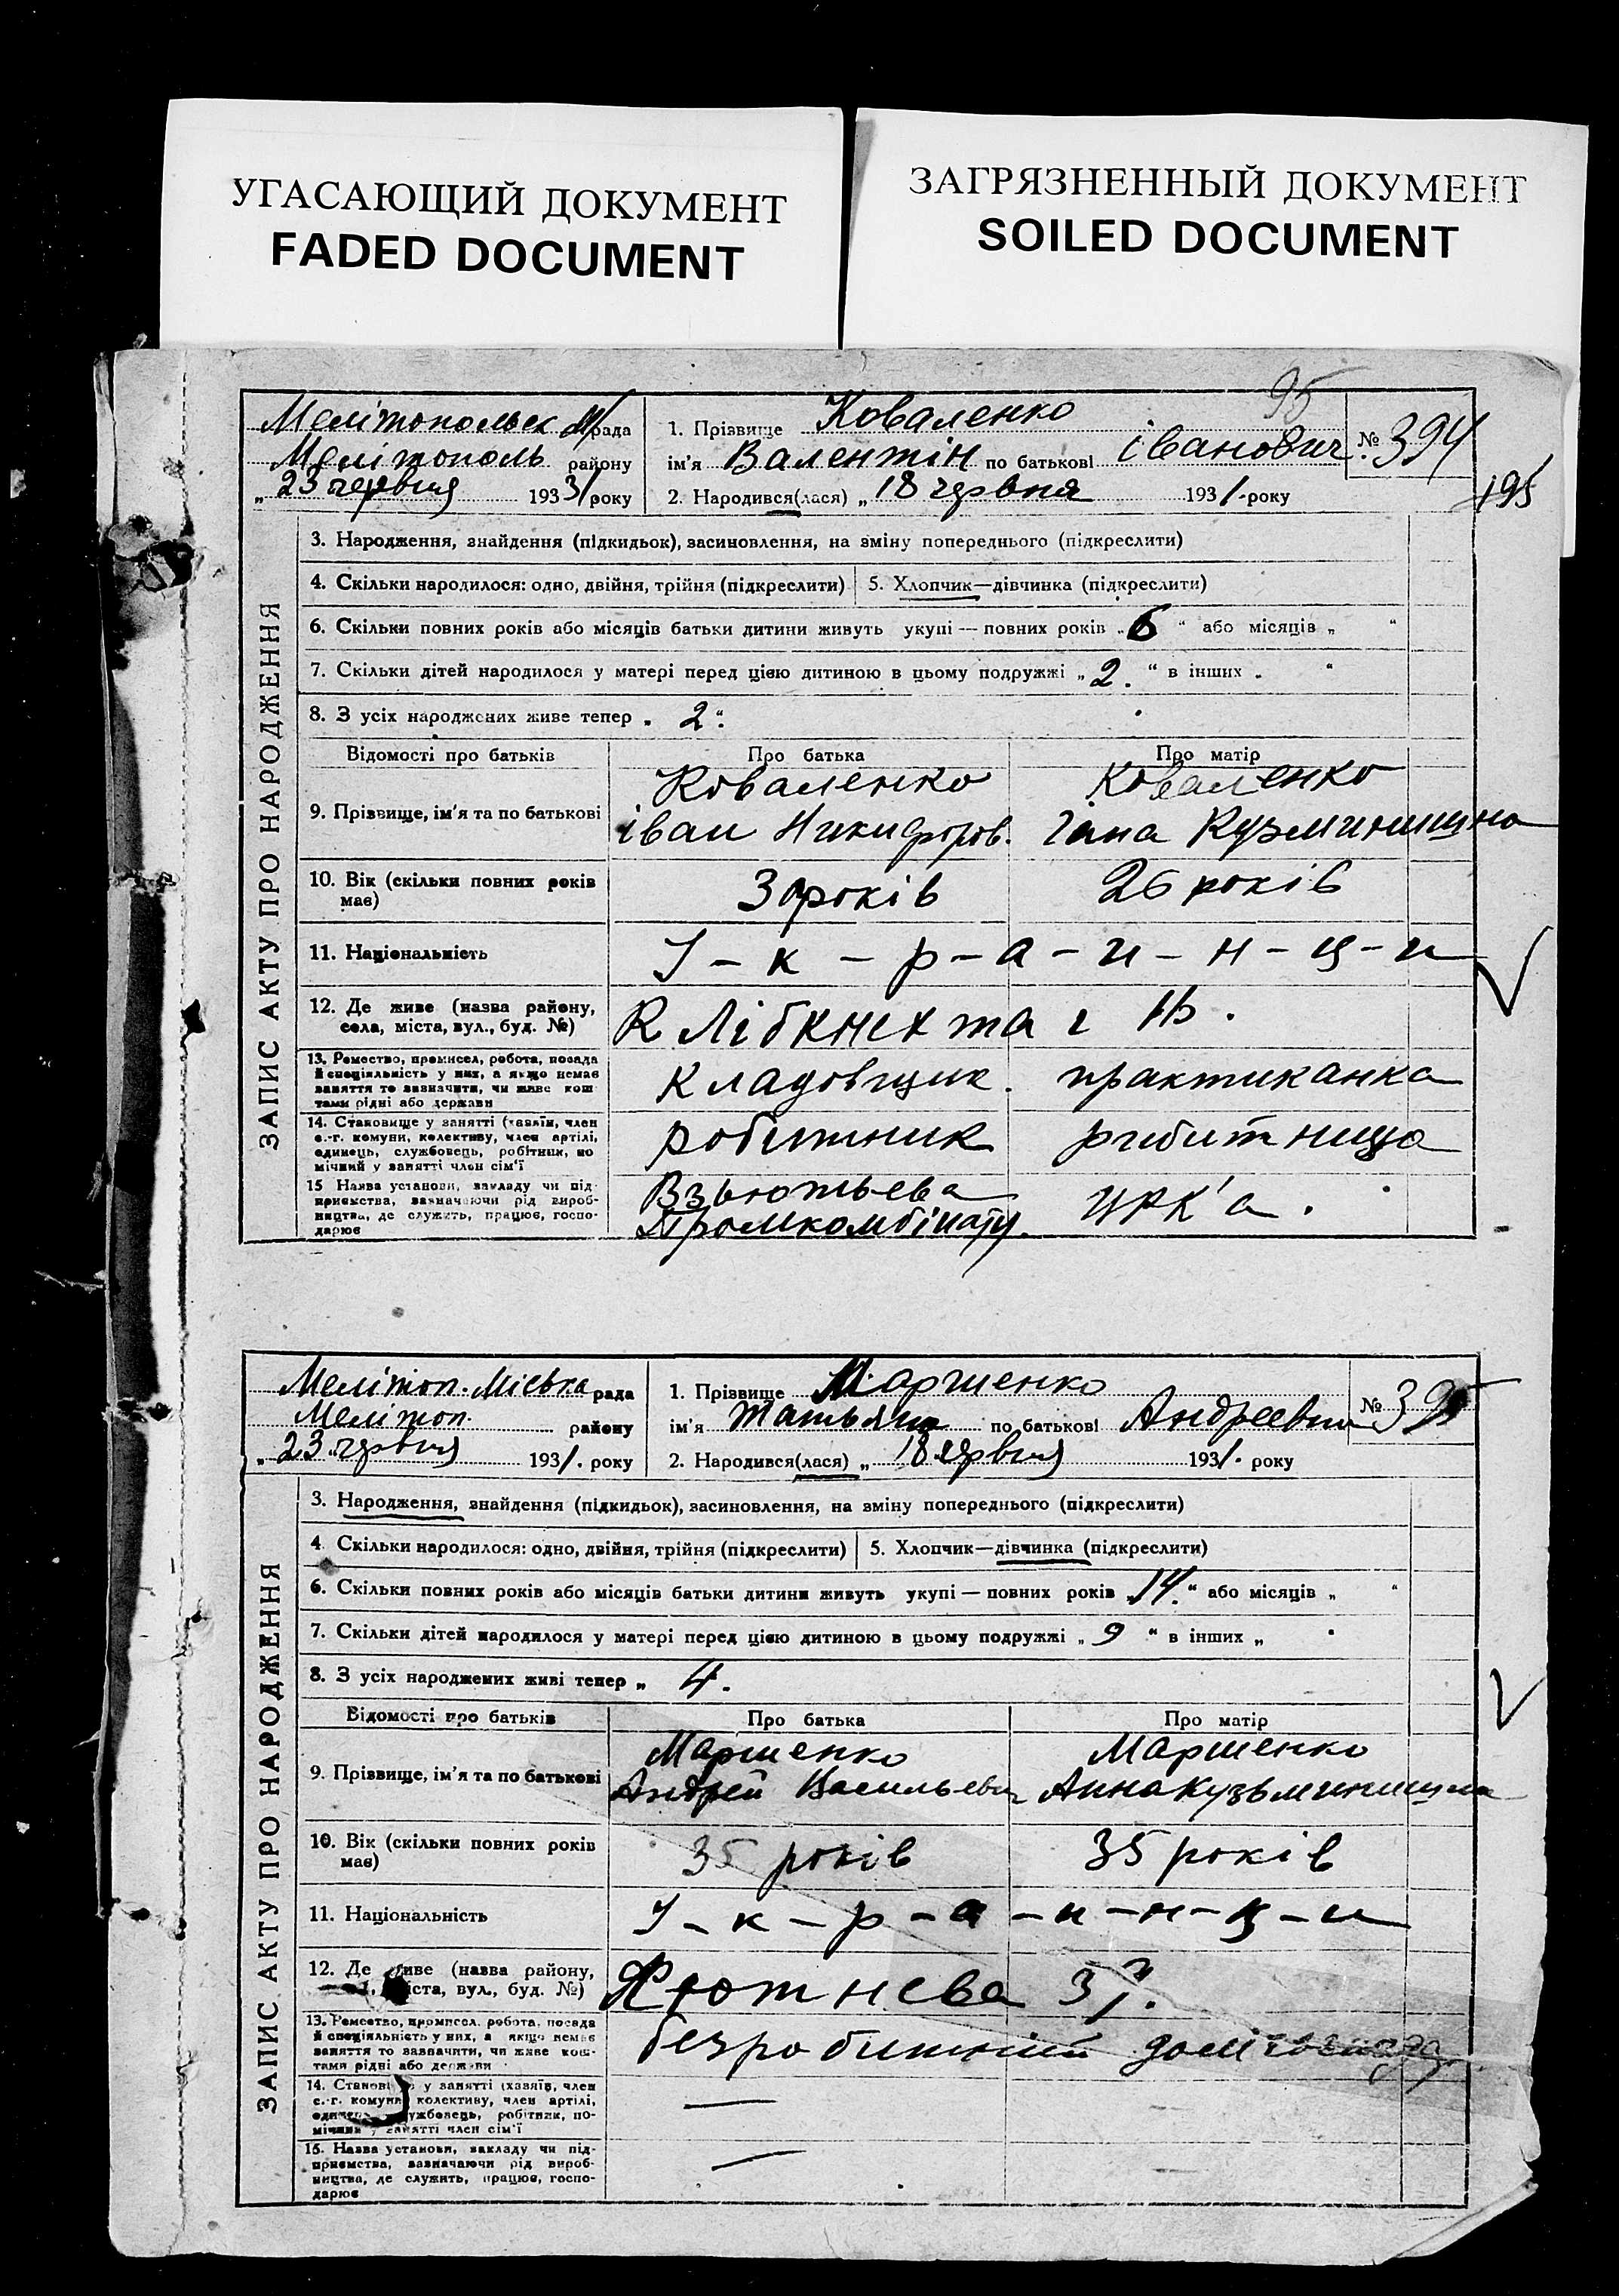 УГАСАЮЩИЙ ДОКУМЕНТ
FADED DOCUMENT
ЗАГРЯЗНЕННЫЙ ДОКУМЕНТ
SOILED DOCUMENT
95
195
ЗАПИС АКТУ ПРО НАРОДЖЕННЯ
Мелітопольск М/рада
Мелітополь району
„ 23 червня 1931 року
1. Прізвище Коваленко
ім'я Валентін по батькові Іванович
№ 394
2. Народився(лася) „ 18 червня 1931. року
3. Народження, знайдення (підкидьок), засиновлення, на зміну попереднього (підкреслити)
4. Скільки народилося: одно, двійня, трійня (підкреслити) 5. Хлопчик—дівчинка (підкреслити)
6. Скільки повних років або місяців батьки дитини живуть укупі — повних років „ 6 “ або місяців „ “
7. Скільки дітей народилося у матері перед цією дитиною в цьому подружжі „ 2. “ в інших „ “
8. З усіх народжених живе тепер „ 2 “.
Відомості про батьків Про батька Про матір
9. Прізвище, ім'я та по батькові
Коваленко
Іван Никифоров.
Коваленко
Гана Кузминишна
10. Вік (скільки повних років
має)
30 років 26 років
11. Національність У-к-р-а-и-н-ц-и
12. Де живе (назва району,
села, міста, вул., буд. №)
К Лібкнехта
13. Ремество, промисел, робота, посада
й спеціяльність у них, а якщо немає
заняття то зазначити, чи живе кош-
тами рідні або держави
Кладовщик. практиканка
14. Становище у занятті (хазяїн, член
с.-г. комуни, колективу, член артілі,
одинець, службовець, робітник, по
мічний у занятті член сім'ї
робітник робитниця
15 Назва установи, закладу чи під-
приємства, зазначаючи рід вироб-
ництва, де служить, працює, госпо-
дарює
Взьютьева
Промкомбінату.
ЦРК'а.
ЗАПИС АКТУ ПРО НАРОДЖЕННЯ
Меліто́п. Міська рада
Меліто́п. району
„ 23 червня 1931. року
1. Прізвище Маршенко
ім'я Татьяна по батькові Андреевна
№ 395
2. Народився(лася) „ 18 червня 1931. року
3. Народження, знайдення (підкидьок), засиновлення, на зміну попереднього (підкреслити)
4. Скільки народилося: одно, двійня, трійня (підкреслити) 5. Хлопчик—дівчинка (підкреслити)
6. Скільки повних років або місяців батьки дитини живуть укупі — повних років „ 14. “ або місяців „ “
7. Скільки дітей народилося у матері перед цією дитиною в цьому подружжі „ 9 “ в інших „ “
8. З усіх народжених живі тепер „ 4.
Відомості про батьків Про батька Про матір
9. Прізвище, ім'я та по батькові
Маршенко
Андрей Васильевич
Маршенко
Анна Кузьминишна
10. Вік (скільки повних років
має)
35 років 35 років
11. Національність У-к-р-а-и-н-ц-и
12. Де живе (назва району,
міста, вул., буд. №)
Жютнева 37.
13. Ремество, промисел, робота, посада
й спеціяльність у них, а якщо немає
заняття то зазначити, чи живе кош-
тами рідні або держави
безробитний
14. Становище у занятті (хазяїн, член
с.-г. комуни, колективу, член артілі,
одинець, службовець, робітник, по-
мічний у занятті член сім'ї
—
15. Назва установи, закладу чи під-
приємства, зазначаючи рід вироб-
ництва, де служить, працює, госпо-
дарює
—